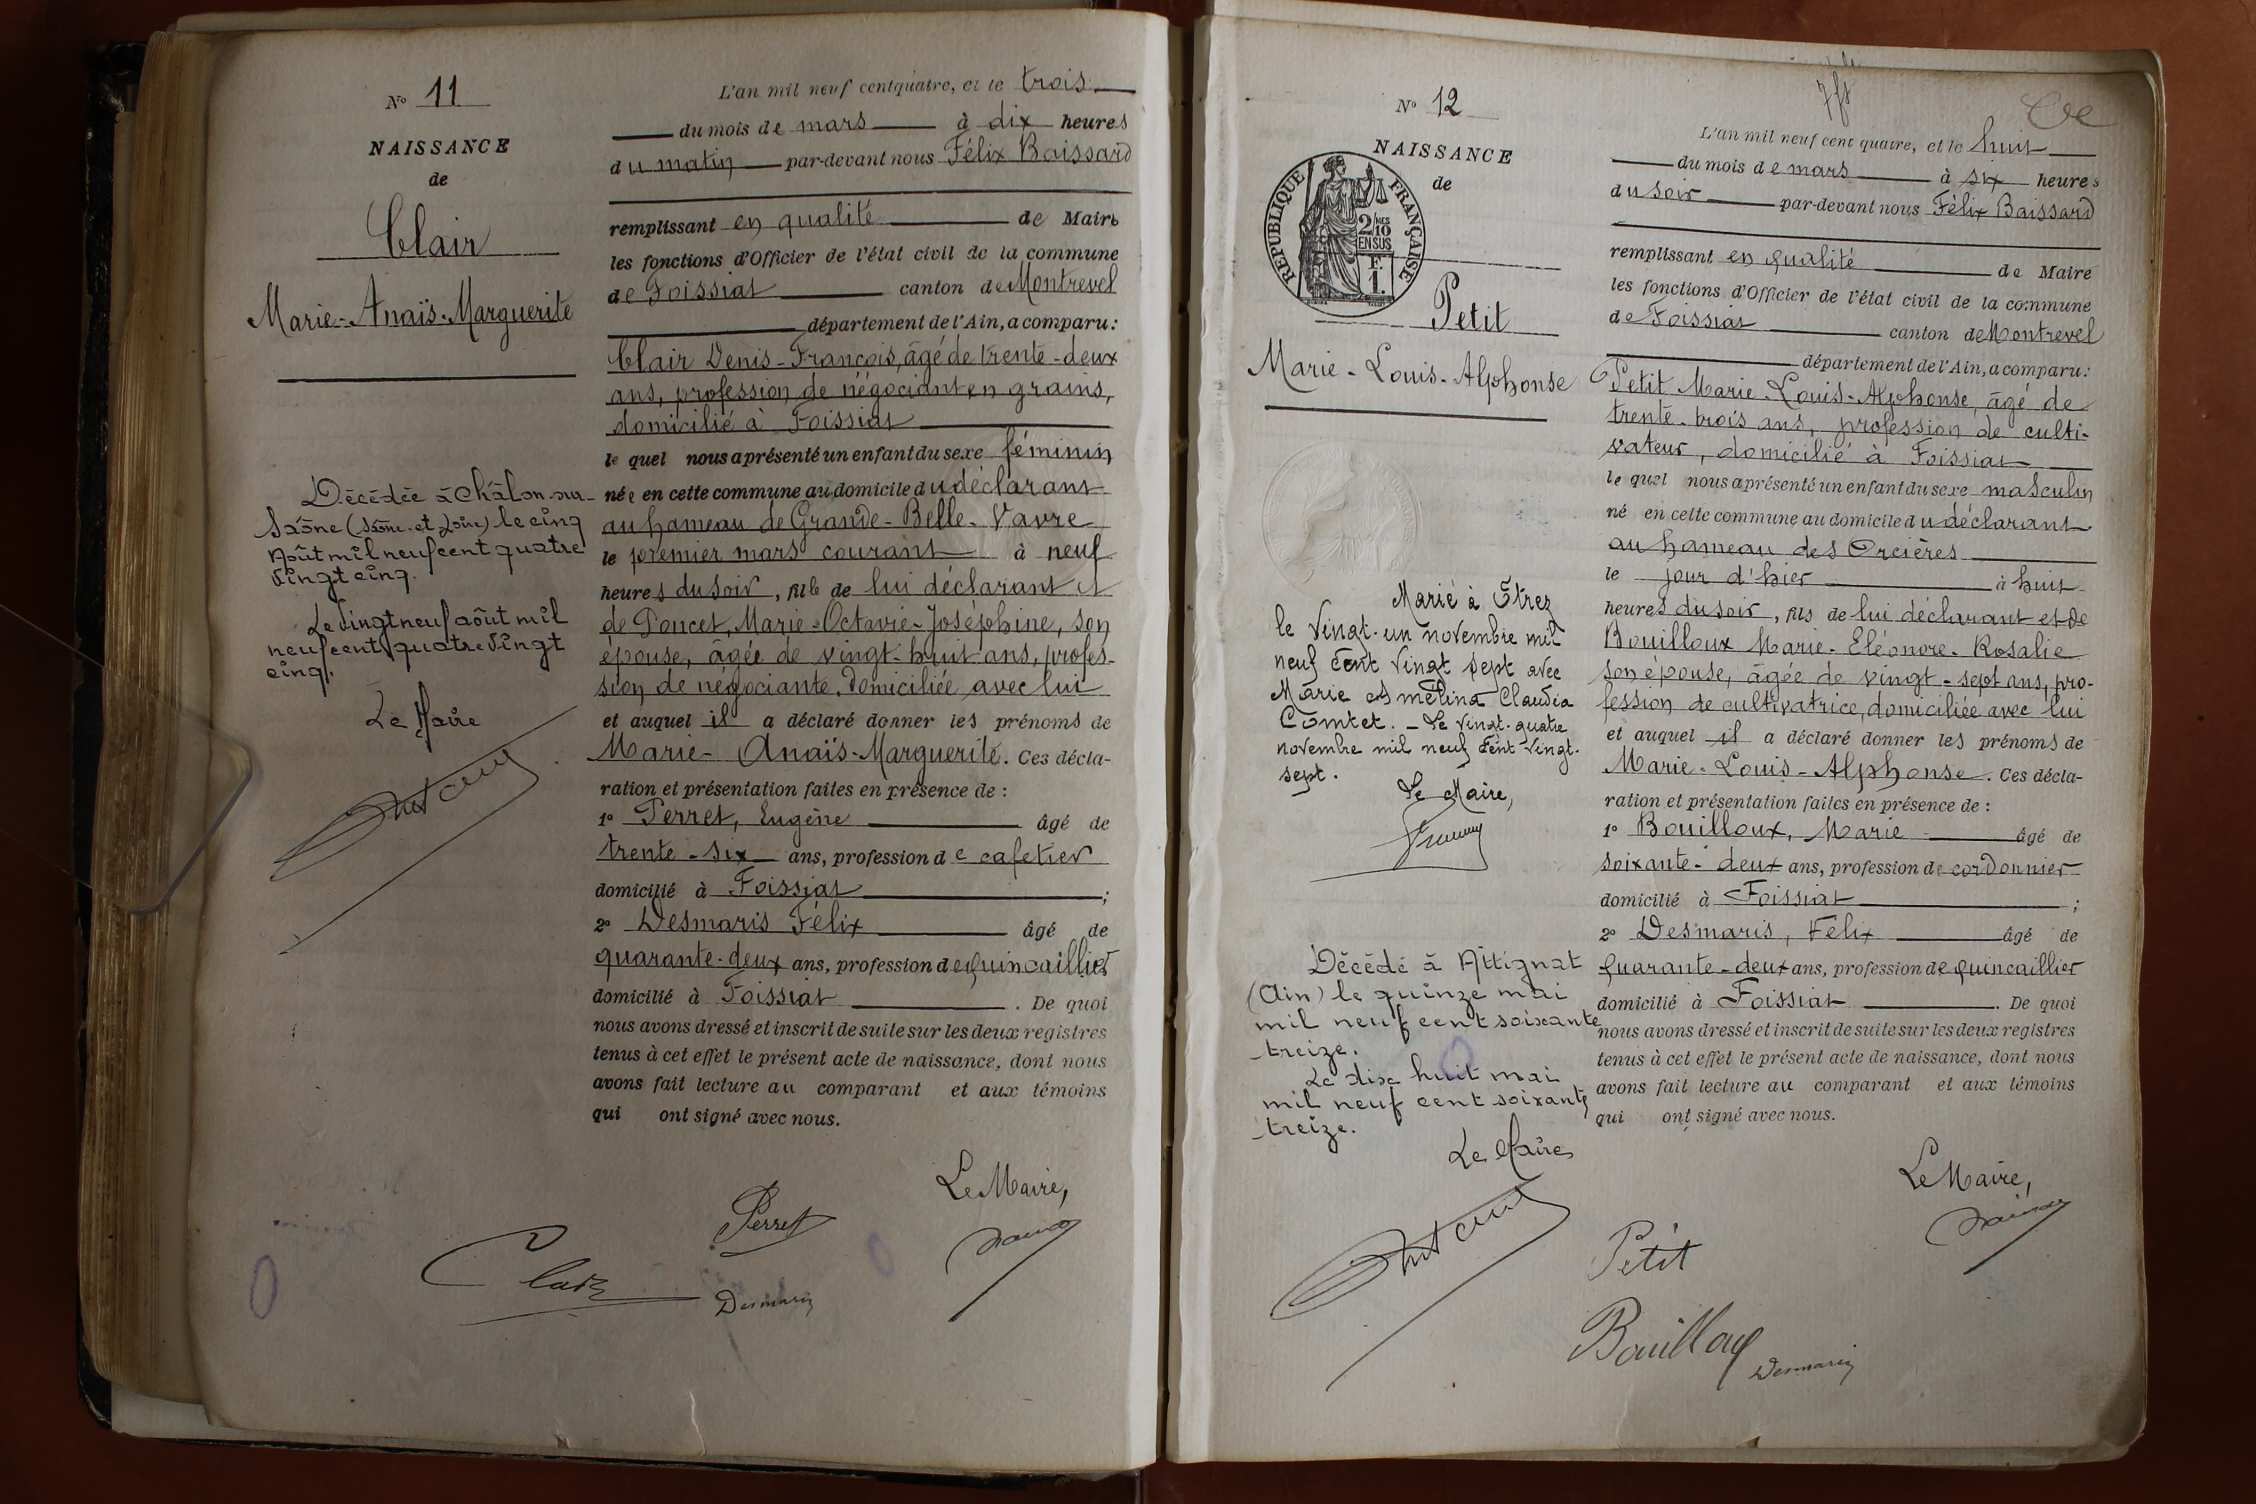 N° 11
NAISSANCE
de
Clair
Marie-Anaïs-Marguerite
Décédée à Châlon-sur-
Saône (Saône-et-Loire) le cinq
Août mil neuf cent quatre
vingt cinq.
Le vingt neuf août mil
neuf cent quatre vingt
cinq.
Le Maire
L'an mil neuf cent quatre, et le trois
du mois de mars à dix heures
du matin par-devant nous Félix Baissard
remplissant en qualité de Maire
les fonctions d'Officier de l'état civil de la commune
de Foissiat canton de Montrevel
département de l'Ain, a comparu:
Clair Denis-François, âgé de trente-deux
ans, profession de négociant en grains,
domicilié à Foissiat
le quel nous a présenté un enfant du sexe féminin
née en cette commune au domicile du déclarant
au hameau de Grande-Belle-Vavre
le premier mars courant à neuf
heures du soir, fille de lui déclarant et
de Poncet, Marie-Octavie-Joséphine, son
épouse, âgée de vingt-huit ans, profes-
sion de négociante, domiciliée avec lui
et auquel il a déclaré donner les prénoms de
Marie-Anaïs-Marguerite. Ces décla-
ration et présentation faites en présence de :
1° Perret, Eugène âgé de
trente-six ans, profession de cafetier
domicilié à Foissiat ;
2° Desmaris Félix âgé de
quarante-deux ans, profession de quincaillier
domicilié à Foissiat . De quoi
nous avons dressé et inscrit de suite sur les deux registres
tenus à cet effet le présent acte de naissance, dont nous
avons fait lecture au comparant et aux témoins
qui ont signé avec nous.
Le Maire,
Perret
Clair
Desmaris
N° 12
NAISSANCE
de
RÉPUBLIQUE FRANÇAISE
2/10 MES
EN SUS
F.
1.
Petit
Marie-Louis-Alphonse
Marié à Etrez
le vingt-un novembre mil
neuf cent vingt sept avec
Marie Asmélina Claudia
Comtet. - Le vingt-quatre
novembre mil neuf cent vingt-
sept.
Le Maire,
Décédé à Attignat
(Ain) le quinze mai
mil neuf cent soixante
-treize.
Le dix huit mai
mil neuf cent soixante
-treize.
Le Maire
L'an mil neuf cent quatre, et le huit
du mois de mars à six heures
du soir par-devant nous Félix Baissard
remplissant en qualité de Maire
les fonctions d'Officier de l'état civil de la commune
de Foissiat canton de Montrevel
département de l'Ain, a comparu:
Petit Marie-Louis-Alphonse, âgé de
trente-trois ans, profession de culti-
vateur, domicilié à Foissiat
le quel nous a présenté un enfant du sexe masculin
né en cette commune au domicile du déclarant
au hameau des Orcières
le jour d'hier à huit
heures du soir, fils de lui déclarant et de
Bouilloux Marie-Eléonore-Rosalie
son épouse, âgée de vingt-sept ans, pro-
fession de cultivatrice, domiciliée avec lui
et auquel il a déclaré donner les prénoms de
Marie-Louis-Alphonse. Ces décla-
ration et présentation faites en présence de :
1° Bouilloux, Marie âgé de
soixante-deux ans, profession de cordonnier
domicilié à Foissiat ;
2° Desmaris, Félix âgé de
quarante-deux ans, profession de quincaillier
domicilié à Foissiat . De quoi
nous avons dressé et inscrit de suite sur les deux registres
tenus à cet effet le présent acte de naissance, dont nous
avons fait lecture au comparant et aux témoins
qui ont signé avec nous.
Le Maire,
Petit
Bouilloux
Desmaris